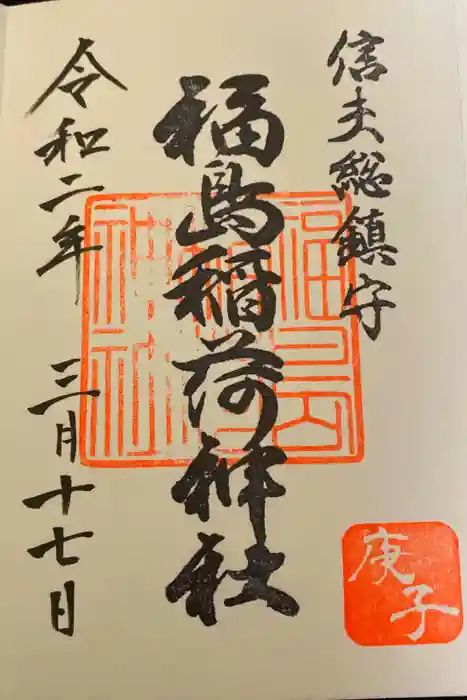 信夫総鎮守
福島稲荷神社
令和二年 三月十七日
庚子